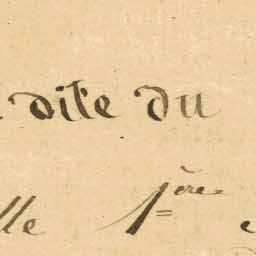 dite du
lle 1ère